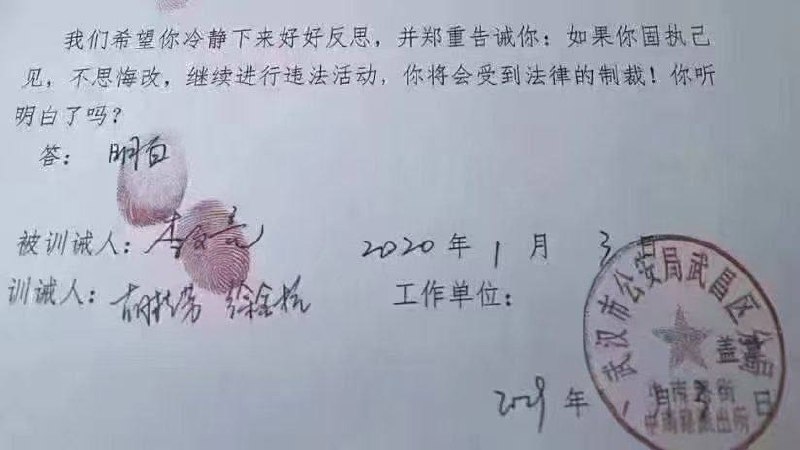 我们希望你冷静下来好好反思，并郑重告诫你：如果你固执己
见，不思悔改，继续进行违法活动，你将会受到法律的制裁！你听
明白了吗？
答： 明白
被训诫人：李文亮 2020 年 1 月 3 日
训诫人： 工作单位：
武汉市公安局武昌区分局
中南路街
中南路派出所
年 月 日